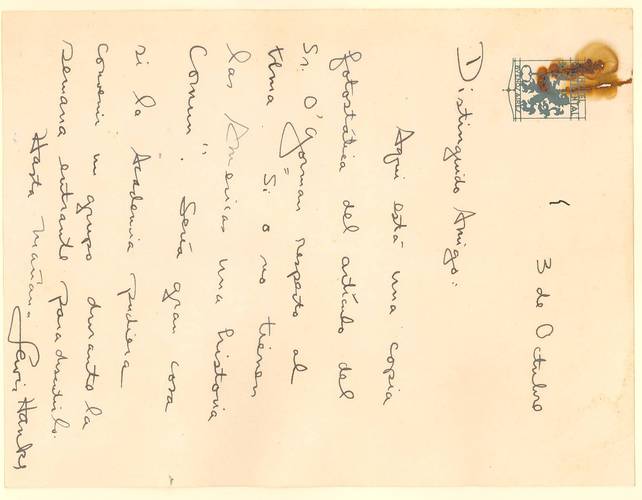 3 de Octubre
Distinguido Amigo:
Aqui está una copia
fotostática del artículo del
Sr. O'Gorman respecto al
tema "Si o no tienen
las Americas una historia
Comun". Será gran cosa
si la Academia pudiera
convenir un grupo durante la
semana entrante para discutirlo.
Hasta mañana
Lewis Hanke